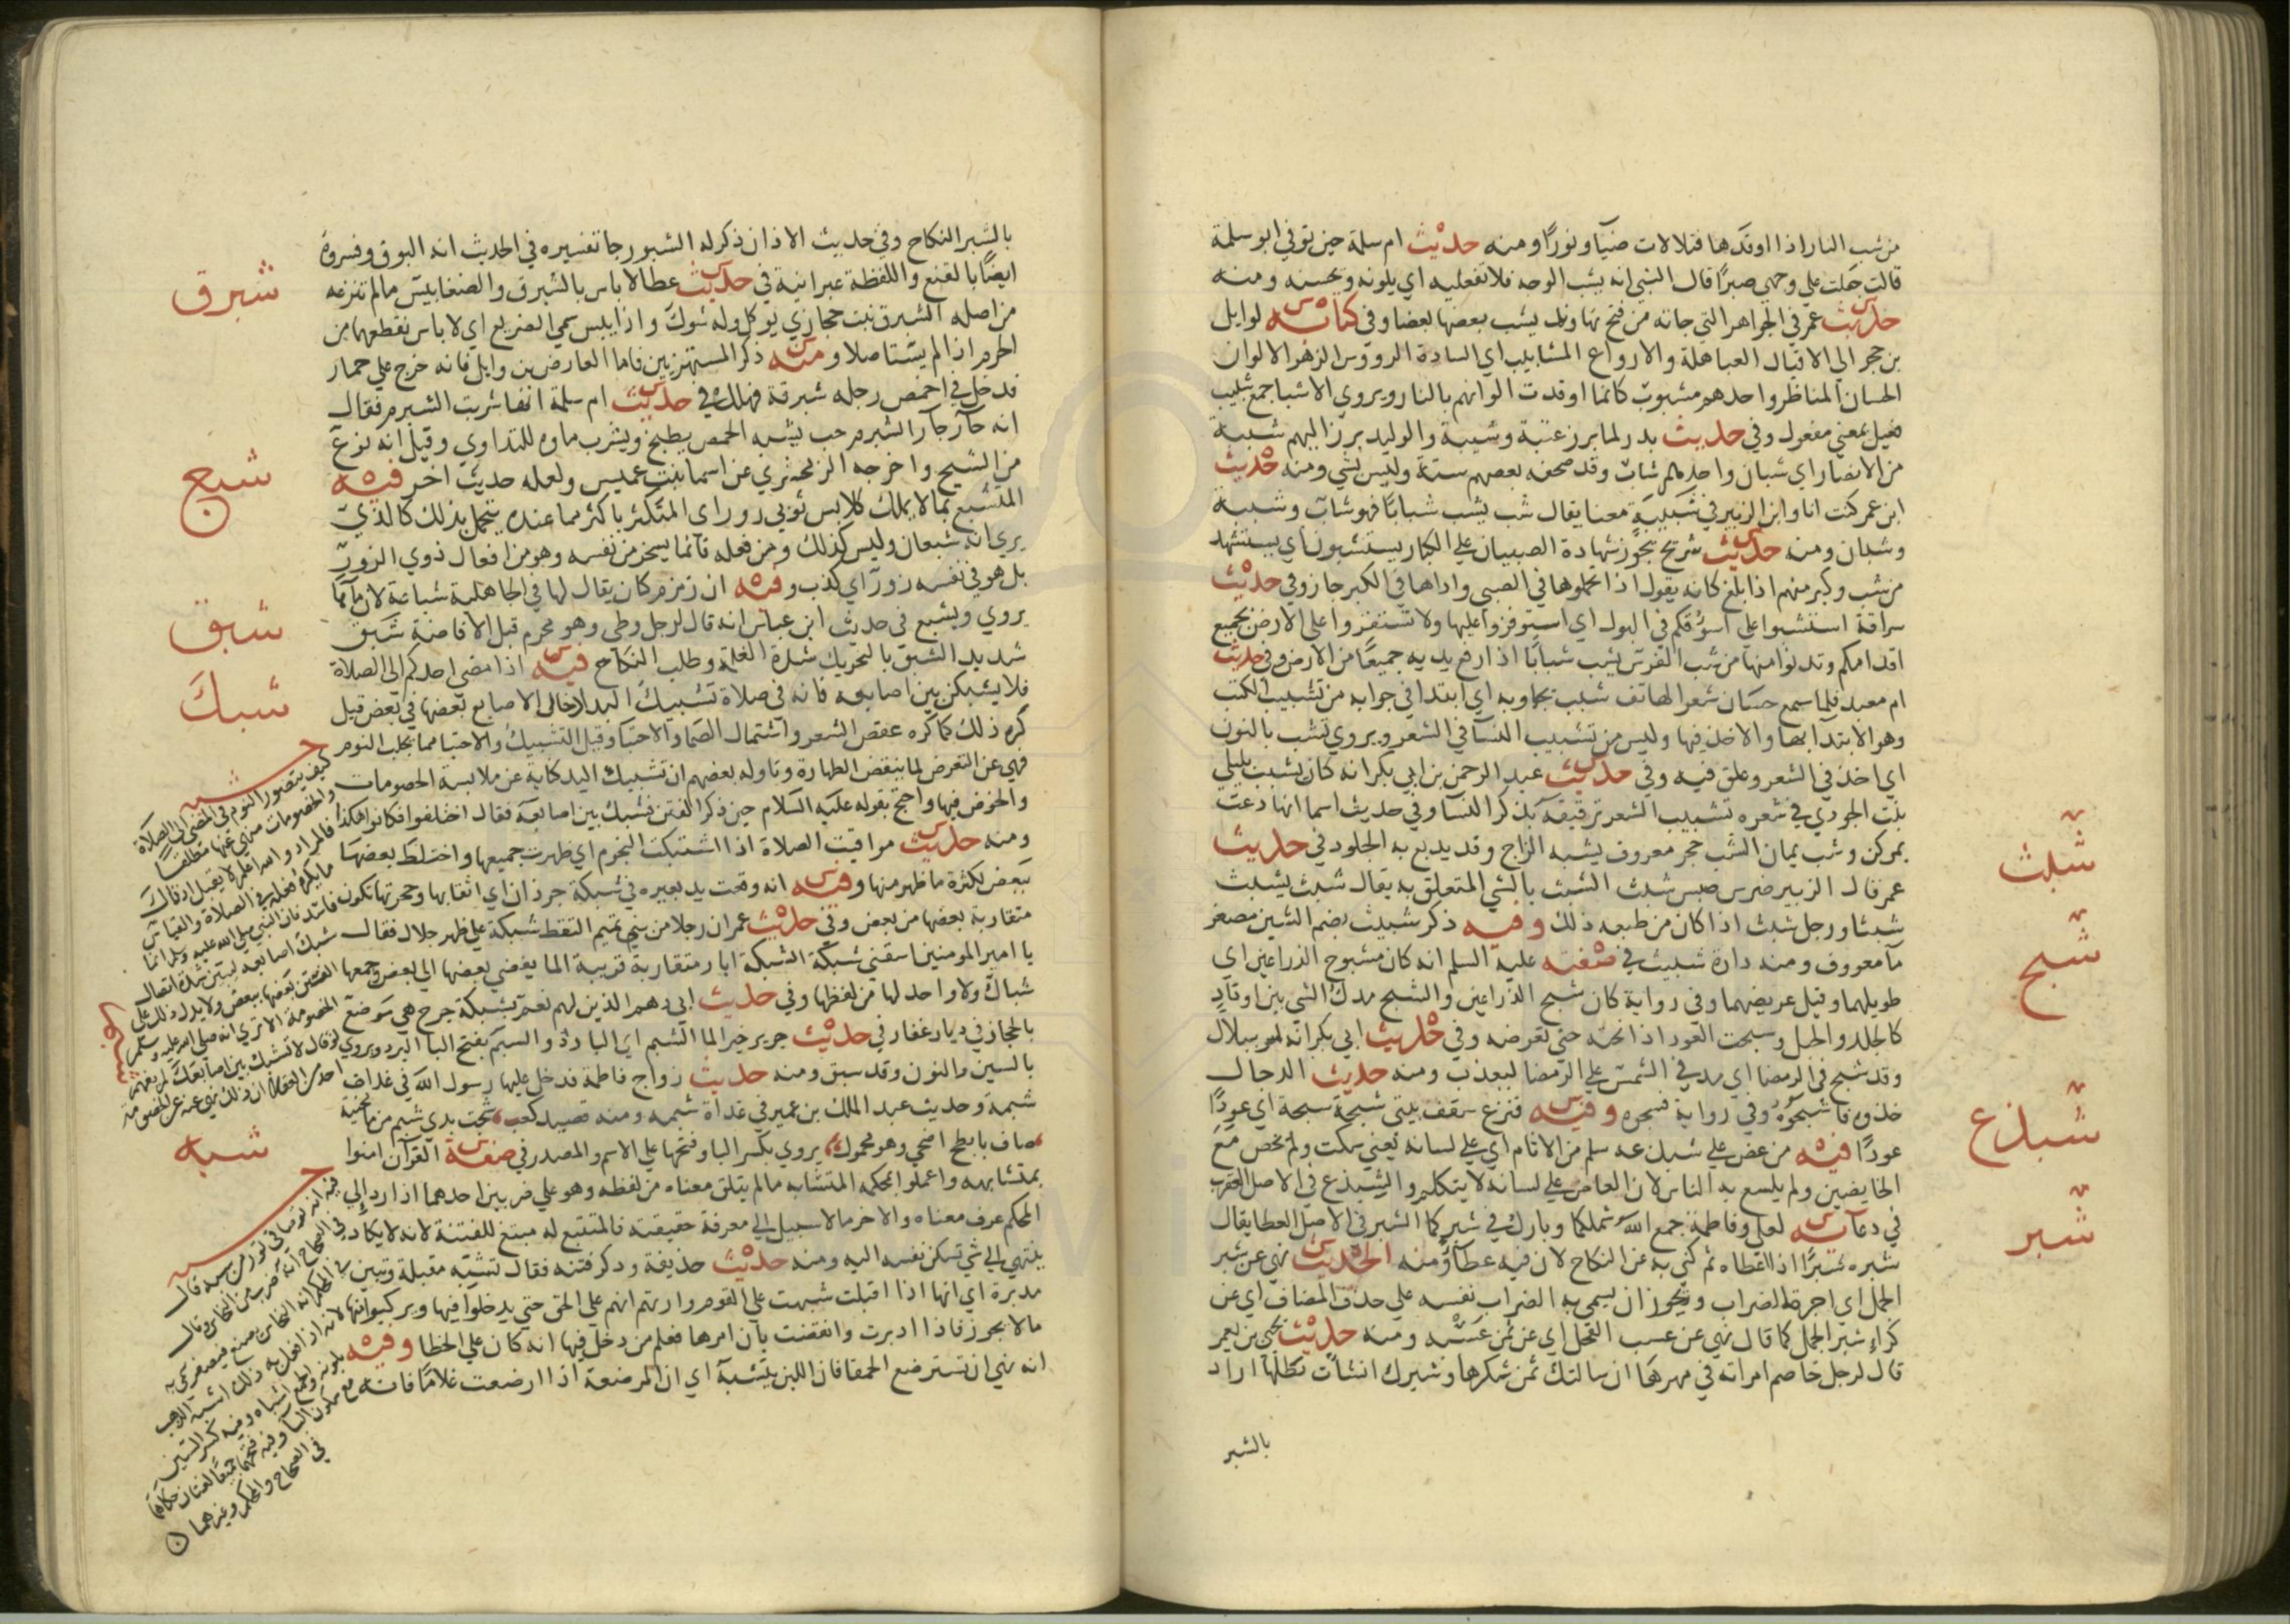 من شب النار اذا اوقدها فتلالات ضيآ ونورًا ومنه حديث ام سلمة حين توفي ابو سلمة
قالت جعلت علي وجهي صبرًا فقال النبي انه يشب الوجه فلا تفعليه اي يلونه ويحسنه ومنه
حديث عمر في الجواهر التي جاته من فتح نهاوند يشب بعضها بعضا وفي كتابه لوايل
بن حجر الي الاقيال العباهلة والارواع المشابيب اي السادة الرووس الزهر الالوان
الحسان المناظر واحدهم مشبوب كانما اوقدت الوانهم بالنار ويروي الاشبا جمع شبيب
فعيل بمعني مفعول وفي حديث بدر لما برز عتبة وشيبة والوليد برز اليهم شببة
من الانصار اي شبان واحدهم شاب وقد صحفه بعضهم ستة وليس بشي ومنه حديث
ابن عمر كنت انا وابن الزبير في شببة معنا يقال شب يشب شبابًا فهو شاب وشببة
وشبان ومنه حديث شريح تجوز شهادة الصبيان علي الكبار يستشبون اي يستشهد
من شب وكبر منهم اذا بلغ كانه يقول اذا تحملوها في الصبي واداها في الكبر جاز وفي حديث
سراقة استشبوا علي اسوقكم في البول اي استوفزوا عليها ولا تستقروا علي الارض بجميع
اقدامكم وتدنوا منها من شب الفرس يشب شبابًا اذا رفع يديه جميعًا من الارض وفي حديث
ام معبد فلما سمع حسان شعر الهاتف شبب يجاوبه اي ابتدا في جوابه من تشبيب الكتب
وهو الابتدآ بها والاخذ فيها وليس من تشبيب النسآ في الشعر ويروي نشب بالنون
اي اخذ في الشعر وعلق فيه وفي حديث عبد الرحمن بن ابي بكر انه كان يشبب بليلي
بنت الجودي في شعره تشبيب الشعر ترقيقه بذكر النسا وفي حديث اسما انها دعت
بمركن وشب يمان الشب حجر معروف يشبه الزاج وقد يدبغ به الجلود في حديث
عمر قال الزبير ضرس ضبس شبث الشبث بالشي المتعلق به يقال شبث يشبث
شبثا ورجل شبث اذا كان من طبعه ذلك وفيه ذكر شبيث بضم الشين مصغر
مآ معروف ومنه دارة شبيث في صفته عليه السلم انه كان مشبوح الذراعين اي
طويلهما وقيل عريضهما وفي رواية كان شبح الذراعين والشبح مدك الشي بين اوتاد
كالجلد والحبل وشبحت العود اذا نحته حتي تعرضه وفي حديث ابي بكر انه مر ببلال
وقد شبح في الرمضا اي مد في الشمس علي الرمضا ليعذب ومنه حديث الدجال
خذوه فاشبحوه وفي رواية فشجوه وفيه فنزع سقف بيتي شبحة شبحة اي عودًا
عودًا فيه من عض علي شبدعه سلم من الاثام اي علي لسانه يعني سكت ولم يخض مع
الخايضين ولم يلسع به الناس لان العاض علي لسانه لا يتكلم والشبدع في الاصل العقرب
في دعآيه لعلي وفاطمة جمع الله شملكما وبارك في شبركما الشبر في الاصل العطا يقال
شبره شبرًا اذا اعطاه ثم كني به عن النكاح لان فيه عطآ ومنه الحديث نهي عن شبر
الجمل اي اجرة الضراب ويجوز ان يسمي به الضراب نفسه علي حذف المضاف اي عن
كرآء شبر الجمل كما قال نهي عن عسب الفحل اي عن ثمن عسبه ومنه حديث يحيي بن يعمر
قال لرجل خاصم امراته في مهرها ان سالتك ثمن شكرها وشبرك انشات تطلها اراد
بالشبر
شبث
شبح
شبدع
شبر
بالشبر النكاح وفي حديث الاذان ذكر له الشبور جا تفسيره في الحديث انه البوق وفسروه
ايضًا بالقنع واللفظة عبرانية في حديث عطا لا باس بالشبرق والضغابيس مالم تنزعه
من اصله الشبرق نبت حجازي يوكل وله شوك واذا يبس سمي الضريع اي لا باس بقطعهما من
الحرم اذا لم يستاصلا ومنه ذكر المستهزيين فاما العاص بن وايل فانه خرج علي حمار
فدخل في اخمص رجله شبرقة فهلك في حديث ام سلمة انها شربت الشبرم فقال
انه حآر جآر الشبرم حب يشبه الحمص يطبخ ويشرب ماوه للتداوي وقيل انه نوع
من الشيح واخرجه الزمخشري عن اسما بنت عميس ولعله حديث اخر فيه
المتشبع بما لا يملك كلابس ثوبي زور اي المتكثر باكثر مما عنده يتجمل بذلك كالذي
يري انه شبعان وليس كذلك ومن فعله فانما يسخر من نفسه وهو من افعال ذوي الزور
بل هو في نفسه زور اي كذب وفيه ان زمزم كان يقال لها في الجاهلية شباعة لان مآها
يروي ويشبع في حديث ابن عباس انه قال لرجل وطي وهو محرم قبل الافاضة شبق
شديد الشبق بالتحريك شدة الغلمة وطلب النكاح فيه اذا مضي احدكم الي الصلاة
فلا يشبكن بين اصابعه فانه في صلاة تشبيك اليد ادخال الاصابع بعضها في بعض قيل
كره ذلك كما كره عقص الشعر واشتمال الصما والاحتبا وقيل التشبيك والاحتبا مما يجلب النوم
فنهي عن التعرض لما ينقض الطهارة وتاوله بعضهم ان تشبيك اليد كناية عن ملابسة الخصومات
والخوض فيها واحتج بقوله عليه السلام حين ذكر الفتن فشبك بين اصابعه فقال اختلفوا فكانوا هكذا
ومنه حديث مواقيت الصلاة اذا اشتبكت النجوم اي ظهرت جميعها واختلط بعضها
ببعض لكثرة ما ظهر منها وفيه انه وقعت يد بعيره في شبكة جرذان اي انقابها وجحرتها تكون
متقاربة بعضها من بعض وفي حديث عمر ان رجلا من بني تميم التقط شبكة علي ظهر جلال فقال
يا امير المومنين اسقني شبكة الشبكة ابار متقاربة قريبة الما يفضي بعضها الي بعض وجمعها
شباك ولا واحد لها من لفظها وفي حديث ابي رهم الذين لهم نعم بشبكة جرح هي موضع
بالحجاز في ديار غفار في حديث جرير خير الما الشبم اي البارد والشبم بفتح البا البرد ويروي
بالسين والنون وقد سبق ومنه حديث زواج فاطمة فدخل عليها رسول الله في غداة
شبمة وحديث عبد الملك بن عمير في غداة شبمة ومنه قصيد كعب شجت بذي شبم من ما محنية
صاف بابطح اضحي وهو مشمول يروي بكسر البا وفتحها علي الاسم والمصدر في صفة القرآن امنوا
بمتشابهه واعملوا بمحكمه المتشابه مالم يتلق معناه من لفظه وهو علي ضربين احدهما اذا رد الي
المحكم عرف معناه والاخر مالا سبيل الي معرفة حقيقته فالمتتبع له مبتغ للفتنة لانه لا يكاد
ينتهي الي شي تسكن نفسه اليه ومنه حديث حذيفة وذكر فتنه فقال تشبه مقبلة وتبين
مدبرة اي انها اذا اقبلت شبهت علي القوم وارتهم انهم علي الحق حتي يدخلوا فيها ويركبوا منها
مالا يجوز فاذا ادبرت وانقضت بان امرها فعلم من دخل فيها انه كان علي الخطا وفيه
انه نهي ان تسترضع الحمقا فان اللبن يتشبه اي ان المرضعة اذا ارضعت غلامًا فانه
شبرق
شبع
شبق
شبك
شبم
شبه
كيف يتصور النوم في المضي الي الصلاة
والخصومات منهي عنها مطلقا